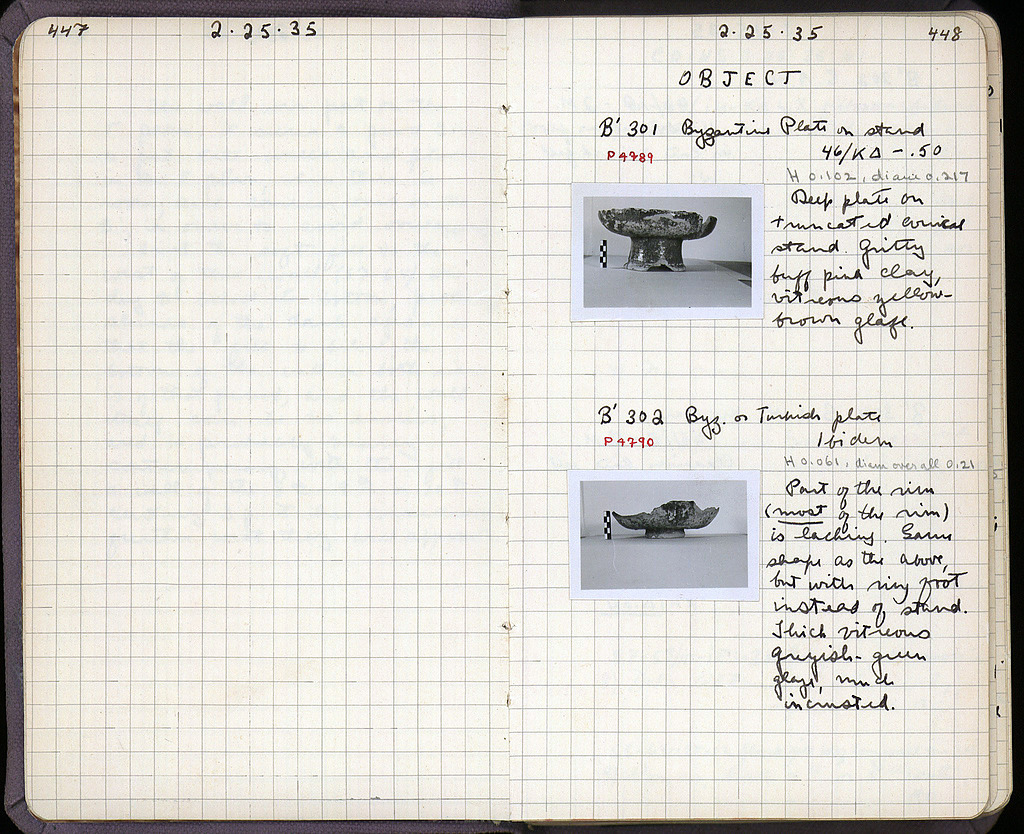 447
2·25·35
2·25·35
448
OBJECT
B' 301 Byzantine Plate on stand
P 4789
46/ΚΔ - .50
H 0.102, diam 0.217
Deep plate on
truncated conical
stand. Gritty
buff pink clay,
vitreous yellow-
brown glaze.
B' 302 Byz. or Turkish plate
P 4790
Ibidem
H 0.061, diam over all 0.21
Part of the rim
(most of the rim)
is lacking. Same
shape as the above,
but with ring foot
instead of stand.
Thick vitreous
greyish-green
glaze, much
incrusted.